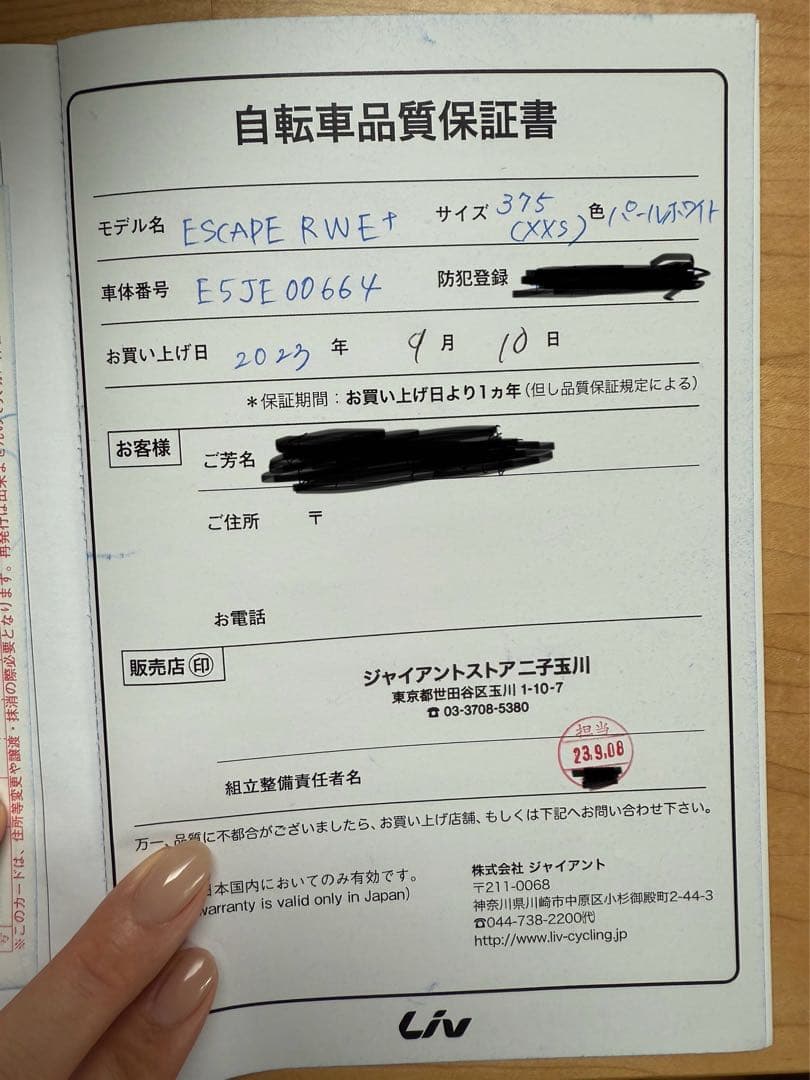 自転車品質保証書
モデル名 ESCAPE RWE+ サイズ 375 (XXS) 色 パールホワイト
車体番号 E5JE00664 防犯登録
お買い上げ日 2023 年 9 月 10 日
＊保証期間：お買い上げ日より1ヵ年（但し品質保証規定による）
お客様 ご芳名
ご住所 〒
お電話
販売店 印
ジャイアントストア二子玉川
東京都世田谷区玉川 1-10-7
☎ 03-3708-5380
担当
23.9.08
組立整備責任者名
万一、品質に不都合がございましたら、お買い上げ店舗、もしくは下記へお問い合わせ下さい。
日本国内においてのみ有効です。
warranty is valid only in Japan)
株式会社 ジャイアント
〒211-0068
神奈川県川崎市中原区小杉御殿町2-44-3
☎044-738-2200㈹
http://www.liv-cycling.jp
Liv
※このカードは、住所等変更や譲渡・抹消の際必要となります。再発行は出来ませんの